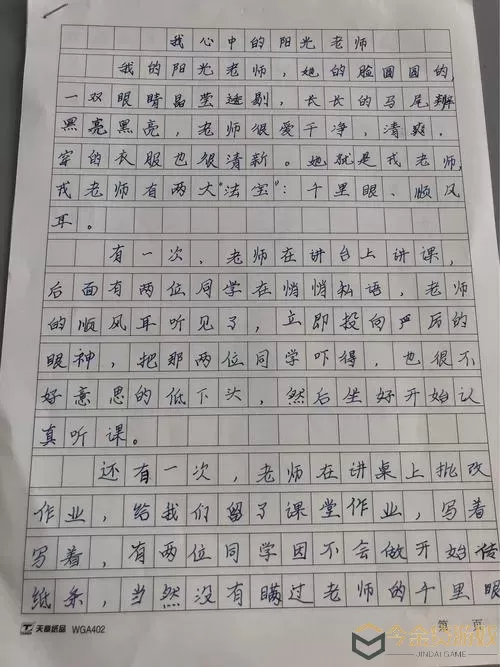 我心中的阳光老师
我的阳光老师，她的脸圆圆的，
一双眼睛晶莹透剔，长长的马尾辫
黑亮黑亮，老师很爱干净，清爽．
穿的衣服也很清新。她就是戎老师，
戎老师有两大"法宝"：千里眼、顺风
耳。
有一次，老师在讲台上讲课，
后面有两位同学在悄悄私语，老师
的顺风耳听见了，立即投向严厉的
眼神，把那两位同学吓得，也很不
好意思的低下头，然后坐好开始认
真听课。
还有一次，老师在讲桌上批改
作业，给我们留了课堂作业，写着
写着，有两位同学因不会做开始传
纸条，当然没有瞒过老师的千里眼
天章纸品 WGA402
第 页
JINDALGAME